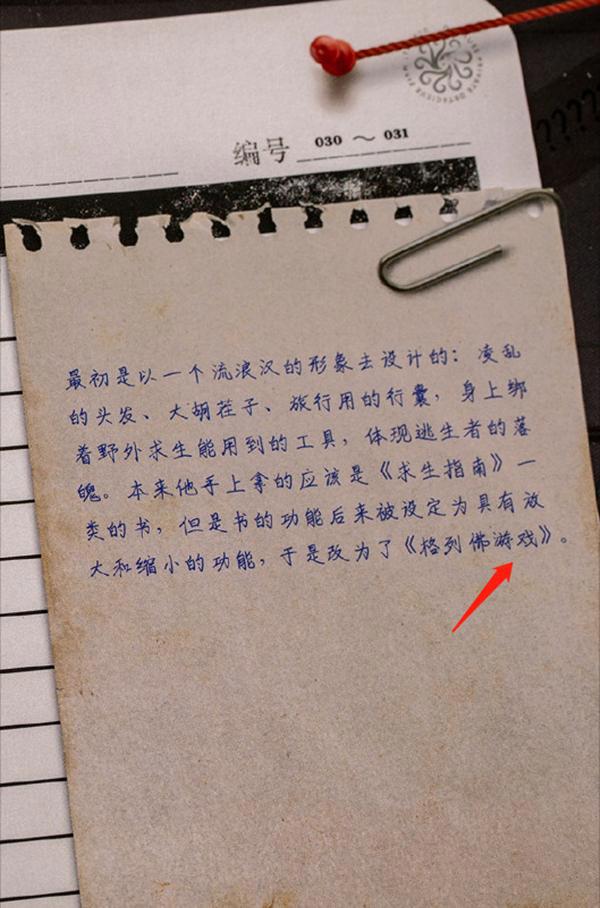 编号 030 ~ 031
最初是以一个流浪汉的形象去设计的：凌乱
的头发、大胡茬子、旅行用的行囊，身上绑
着野外求生能用到的工具，体现逃生者的落
魄。本来他手上拿的应该是《求生指南》一
类的书，但是书的功能后来被设定为具有放
大和缩小的功能，于是改为了《格列佛游戏》。
????